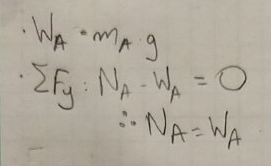 · W_A = m_A · g
· ΣF_y : N_A - W_A = 0
∴ N_A = W_A